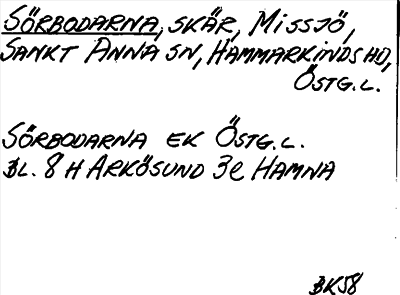 SÖRBODARNA, SKÄR, MISSJÖ,
SANKT ANNA SN, HAMMARKINDS HD,
ÖSTG.L.
SÖRBODARNA EK ÖSTG.L.
BL. 8 H ARKÖSUND 3e HAMNA
BK58